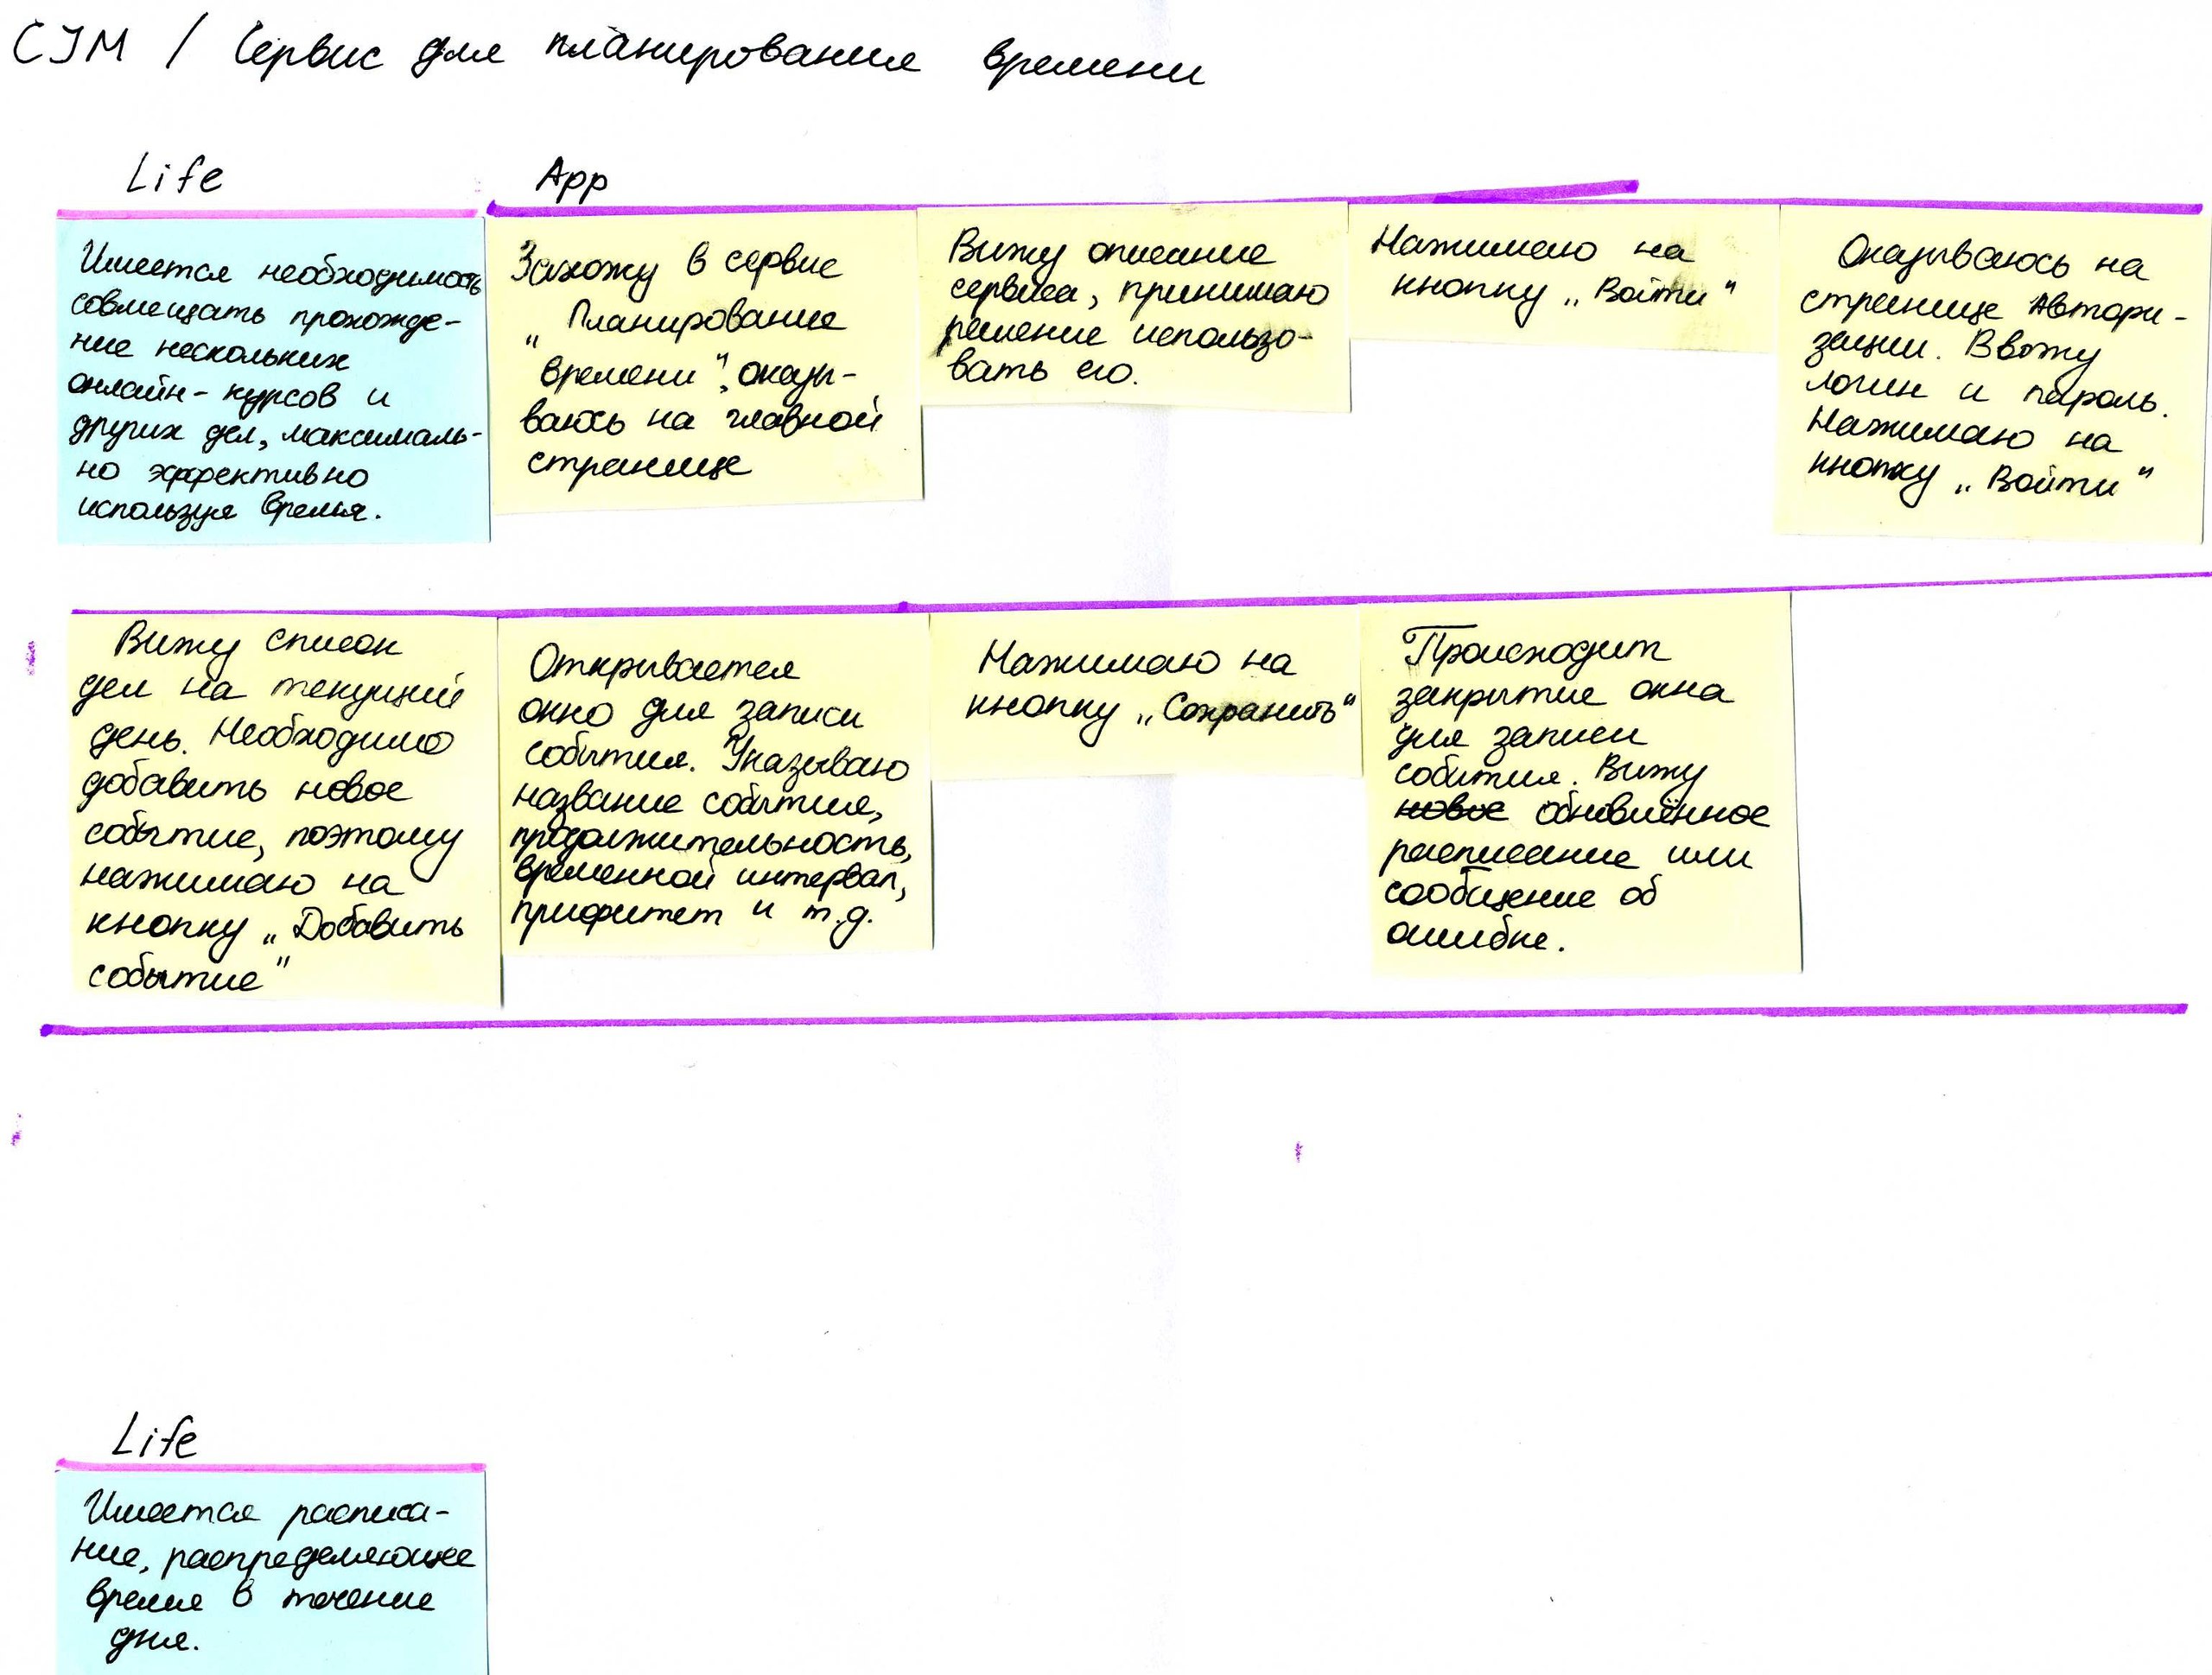 CJM / Сервис для планирования времени
Life
Имеется необходимость
совмещать прохожде-
ние нескольких
онлайн-курсов и
других дел, максималь-
но эффективно
используя время.
App
Захожу в сервис
„Планирование
времени", оказы-
ваюсь на главной
странице
Вижу описание
сервиса, принимаю
решение использо-
вать его.
Нажимаю на
кнопку „Войти"
Оказываюсь на
странице Автори-
зации. Ввожу
логин и пароль.
Нажимаю на
кнопку „Войти"
Вижу список
дел на текущий
день. Необходимо
добавить новое
событие, поэтому
нажимаю на
кнопку „Добавить
событие"
Открывается
окно для записи
события. Указываю
название события,
продолжительность,
временной интервал,
приоритет и т.д.
Нажимаю на
кнопку „Сохранить"
Происходит
закрытие окна
для записи
события. Вижу
новое обновлённое
расписание или
сообщение об
ошибке.
Life
Имеется расписа-
ние, распределяющее
время в течение
дня.